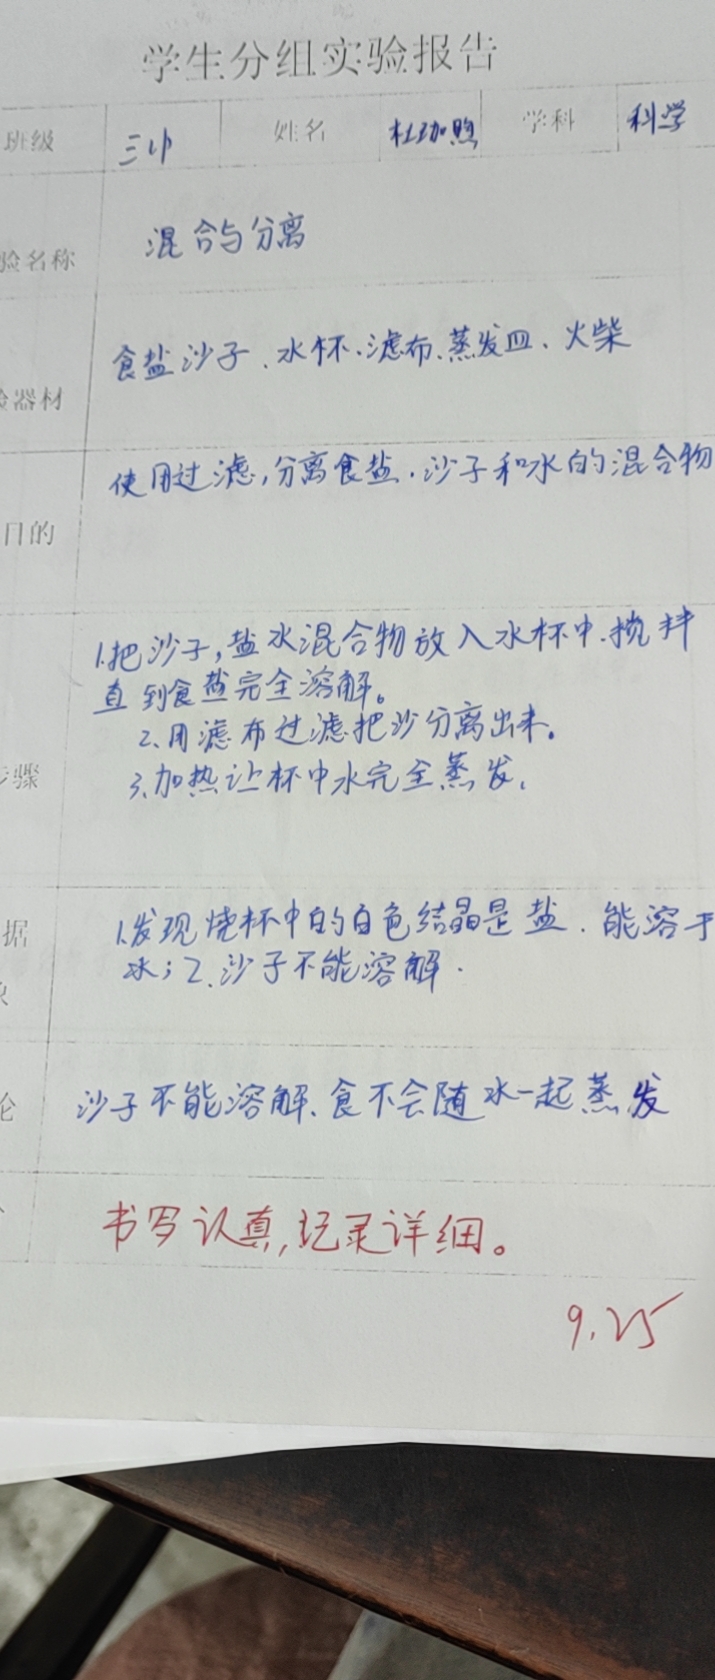 学生分组实验报告
班级 姓名 学科 科学
验名称 混合与分离
验器材 食盐沙子、水杯、滤布、蒸发皿、火柴
目的 使用过滤,分离食盐、沙子和水的混合物
1.把沙子,盐水混合物放入水杯中.搅拌
直到食盐完全溶解。
2、用滤布过滤把沙分离出来。
步骤 3、加热让杯中水完全蒸发.
据 1.发现烧杯中的白色结晶是盐.能溶于
水;2.沙子不能溶解.
论 沙子不能溶解、食不会随水一起蒸发
书写认真,记录详细。
9.25